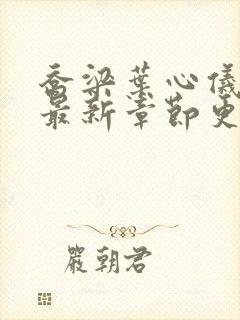 乔梁葉心儀
最新章節更
嚴朝君